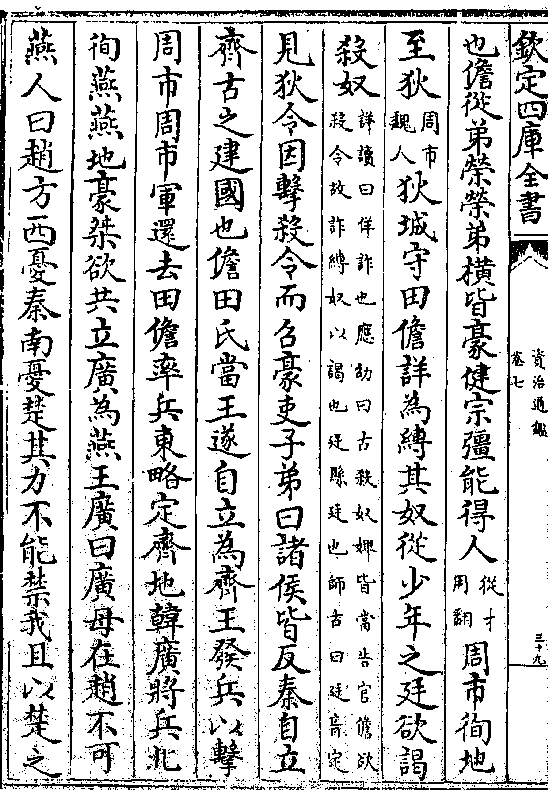 欽定四庫全書
資治通鑑
卷七
三十九
也儋從弟榮榮弟橫皆豪健宗彊能得人
從才
用翻
周市徇地
至狄
周市
魏人
狄城守田儋詳為縛其奴從少年之廷欲謁
殺奴
詳讀曰佯詐也應劭曰古殺奴婢皆當告官儋欲
殺令故詐縛奴以謁也廷縣廷也師古曰廷音定
見狄令因擊殺令而召豪吏子弟曰諸侯皆反秦自立
齊古之建國也儋田氏當王遂自立為齊王發兵以擊
周市周市軍還去田儋率兵東略定齊地韓廣將兵北
徇燕燕地豪桀欲共立廣為燕王廣曰廣母在趙不可
燕人曰趙方西憂秦南憂楚其力不能禁我且以楚之